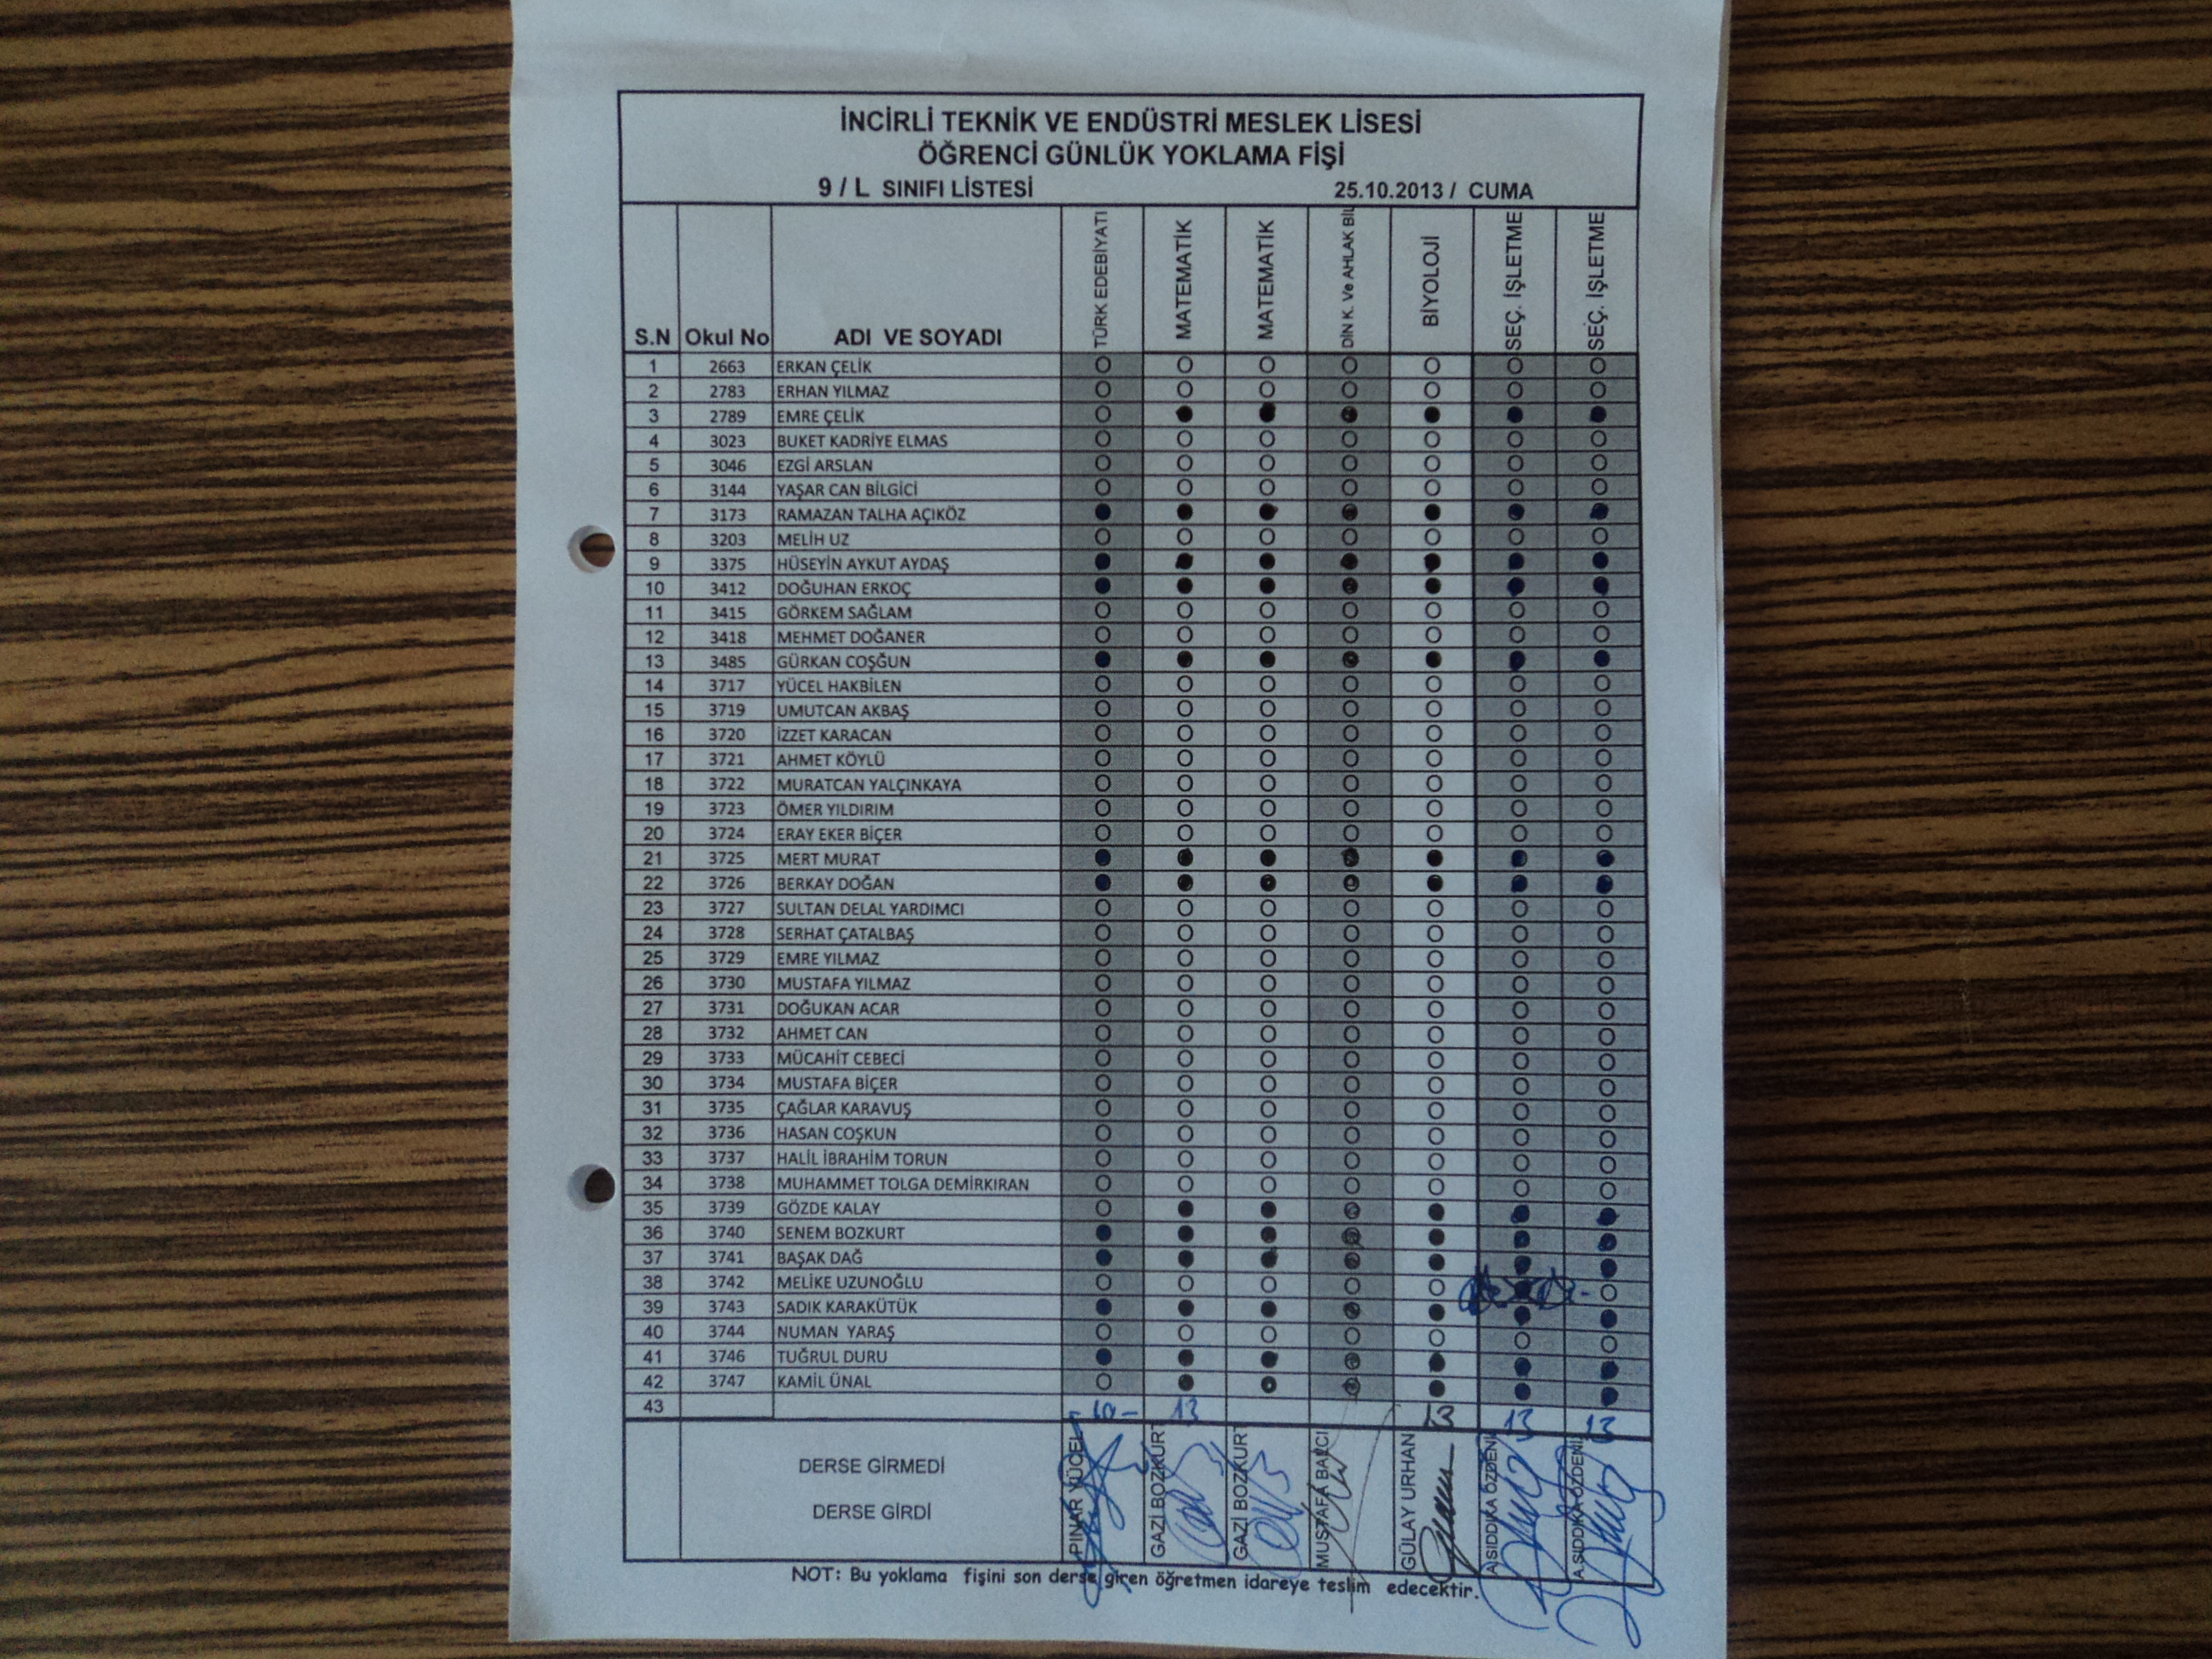 İNCİRLİ TEKNİK VE ENDÜSTRİ MESLEK LİSESİ
ÖĞRENCİ GÜNLÜK YOKLAMA FİŞİ
9 / L SINIFI LİSTESİ 25.10.2013 / CUMA
S.N Okul No ADI VE SOYADI TÜRK EDEBİYATI MATEMATİK MATEMATİK DİN K. Ve AHLAK BİL BİYOLOJİ SEÇ. İŞLETME SEÇ. İŞLETME
1 2663 ERKAN ÇELİK
2 2783 ERHAN YILMAZ
3 2789 EMRE ÇELİK
4 3023 BUKET KADRİYE ELMAS
5 3046 EZGİ ARSLAN
6 3144 YAŞAR CAN BİLGİCİ
7 3173 RAMAZAN TALHA AÇIKÖZ
8 3203 MELİH UZ
9 3375 HÜSEYİN AYKUT AYDAŞ
10 3412 DOĞUHAN ERKOÇ
11 3415 GÖRKEM SAĞLAM
12 3418 MEHMET DOĞANER
13 3485 GÜRKAN COŞĞUN
14 3717 YÜCEL HAKBİLEN
15 3719 UMUTCAN AKBAŞ
16 3720 İZZET KARACAN
17 3721 AHMET KÖYLÜ
18 3722 MURATCAN YALÇINKAYA
19 3723 ÖMER YILDIRIM
20 3724 ERAY EKER BİÇER
21 3725 MERT MURAT
22 3726 BERKAY DOĞAN
23 3727 SULTAN DELAL YARDIMCI
24 3728 SERHAT ÇATALBAŞ
25 3729 EMRE YILMAZ
26 3730 MUSTAFA YILMAZ
27 3731 DOĞUKAN ACAR
28 3732 AHMET CAN
29 3733 MÜCAHİT CEBECİ
30 3734 MUSTAFA BİÇER
31 3735 ÇAĞLAR KARAVUŞ
32 3736 HASAN COŞKUN
33 3737 HALİL İBRAHİM TORUN
34 3738 MUHAMMET TOLGA DEMİRKIRAN
35 3739 GÖZDE KALAY
36 3740 SENEM BOZKURT
37 3741 BAŞAK DAĞ
38 3742 MELİKE UZUNOĞLU
39 3743 SADIK KARAKÜTÜK
40 3744 NUMAN YARAŞ
41 3746 TUĞRUL DURU
42 3747 KAMİL ÜNAL
43 13 13 13 13
DERSE GİRMEDİ
DERSE GİRDİ
PINAR YÜCEL GAZİ BOZKURT GAZİ BOZKURT MUSTAFA BALCI GÜLAY URHAN A.SIDDIKA ÖZDENİ A.SIDDIKA ÖZDENİ
NOT: Bu yoklama fişini son derse giren öğretmen idareye teslim edecektir.